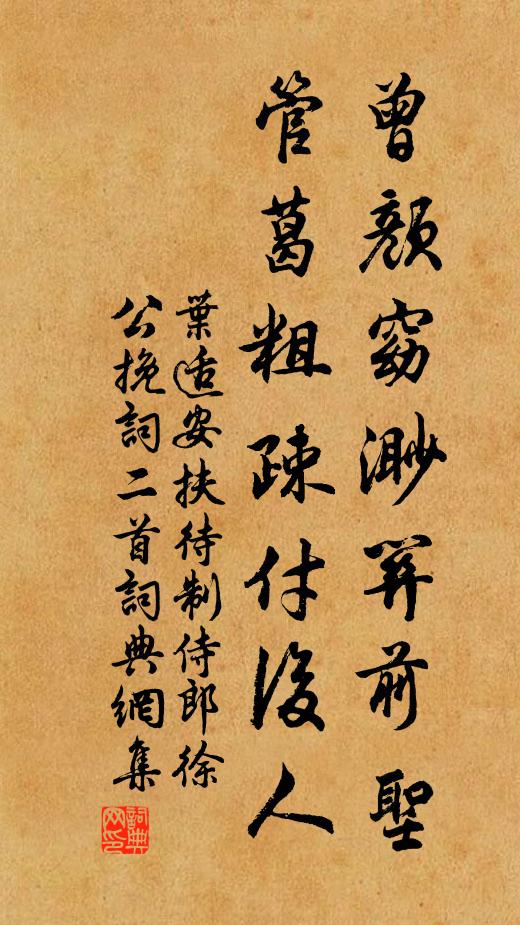 曾顔窈渺開前聖
管葛粗疎付後人
葉适安扶待制侍郎徐
公挽詞二首詞典網集
詞典
网印